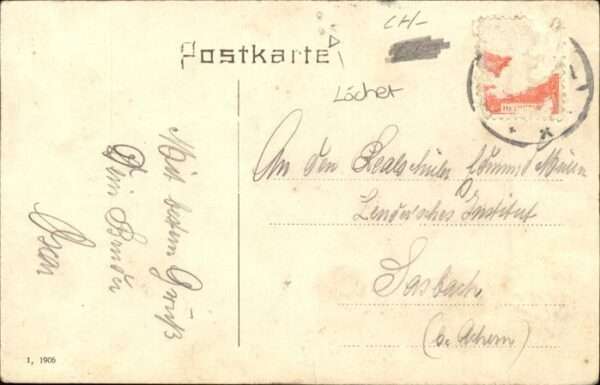 Postkarte
CH-
Löcher
An den Realschüler Edmund Müller
Lender'sches Institut
Sasbach
(b. Achern)
Mit bestem Gruß
Dein Bruder
Oscar
1, 1906